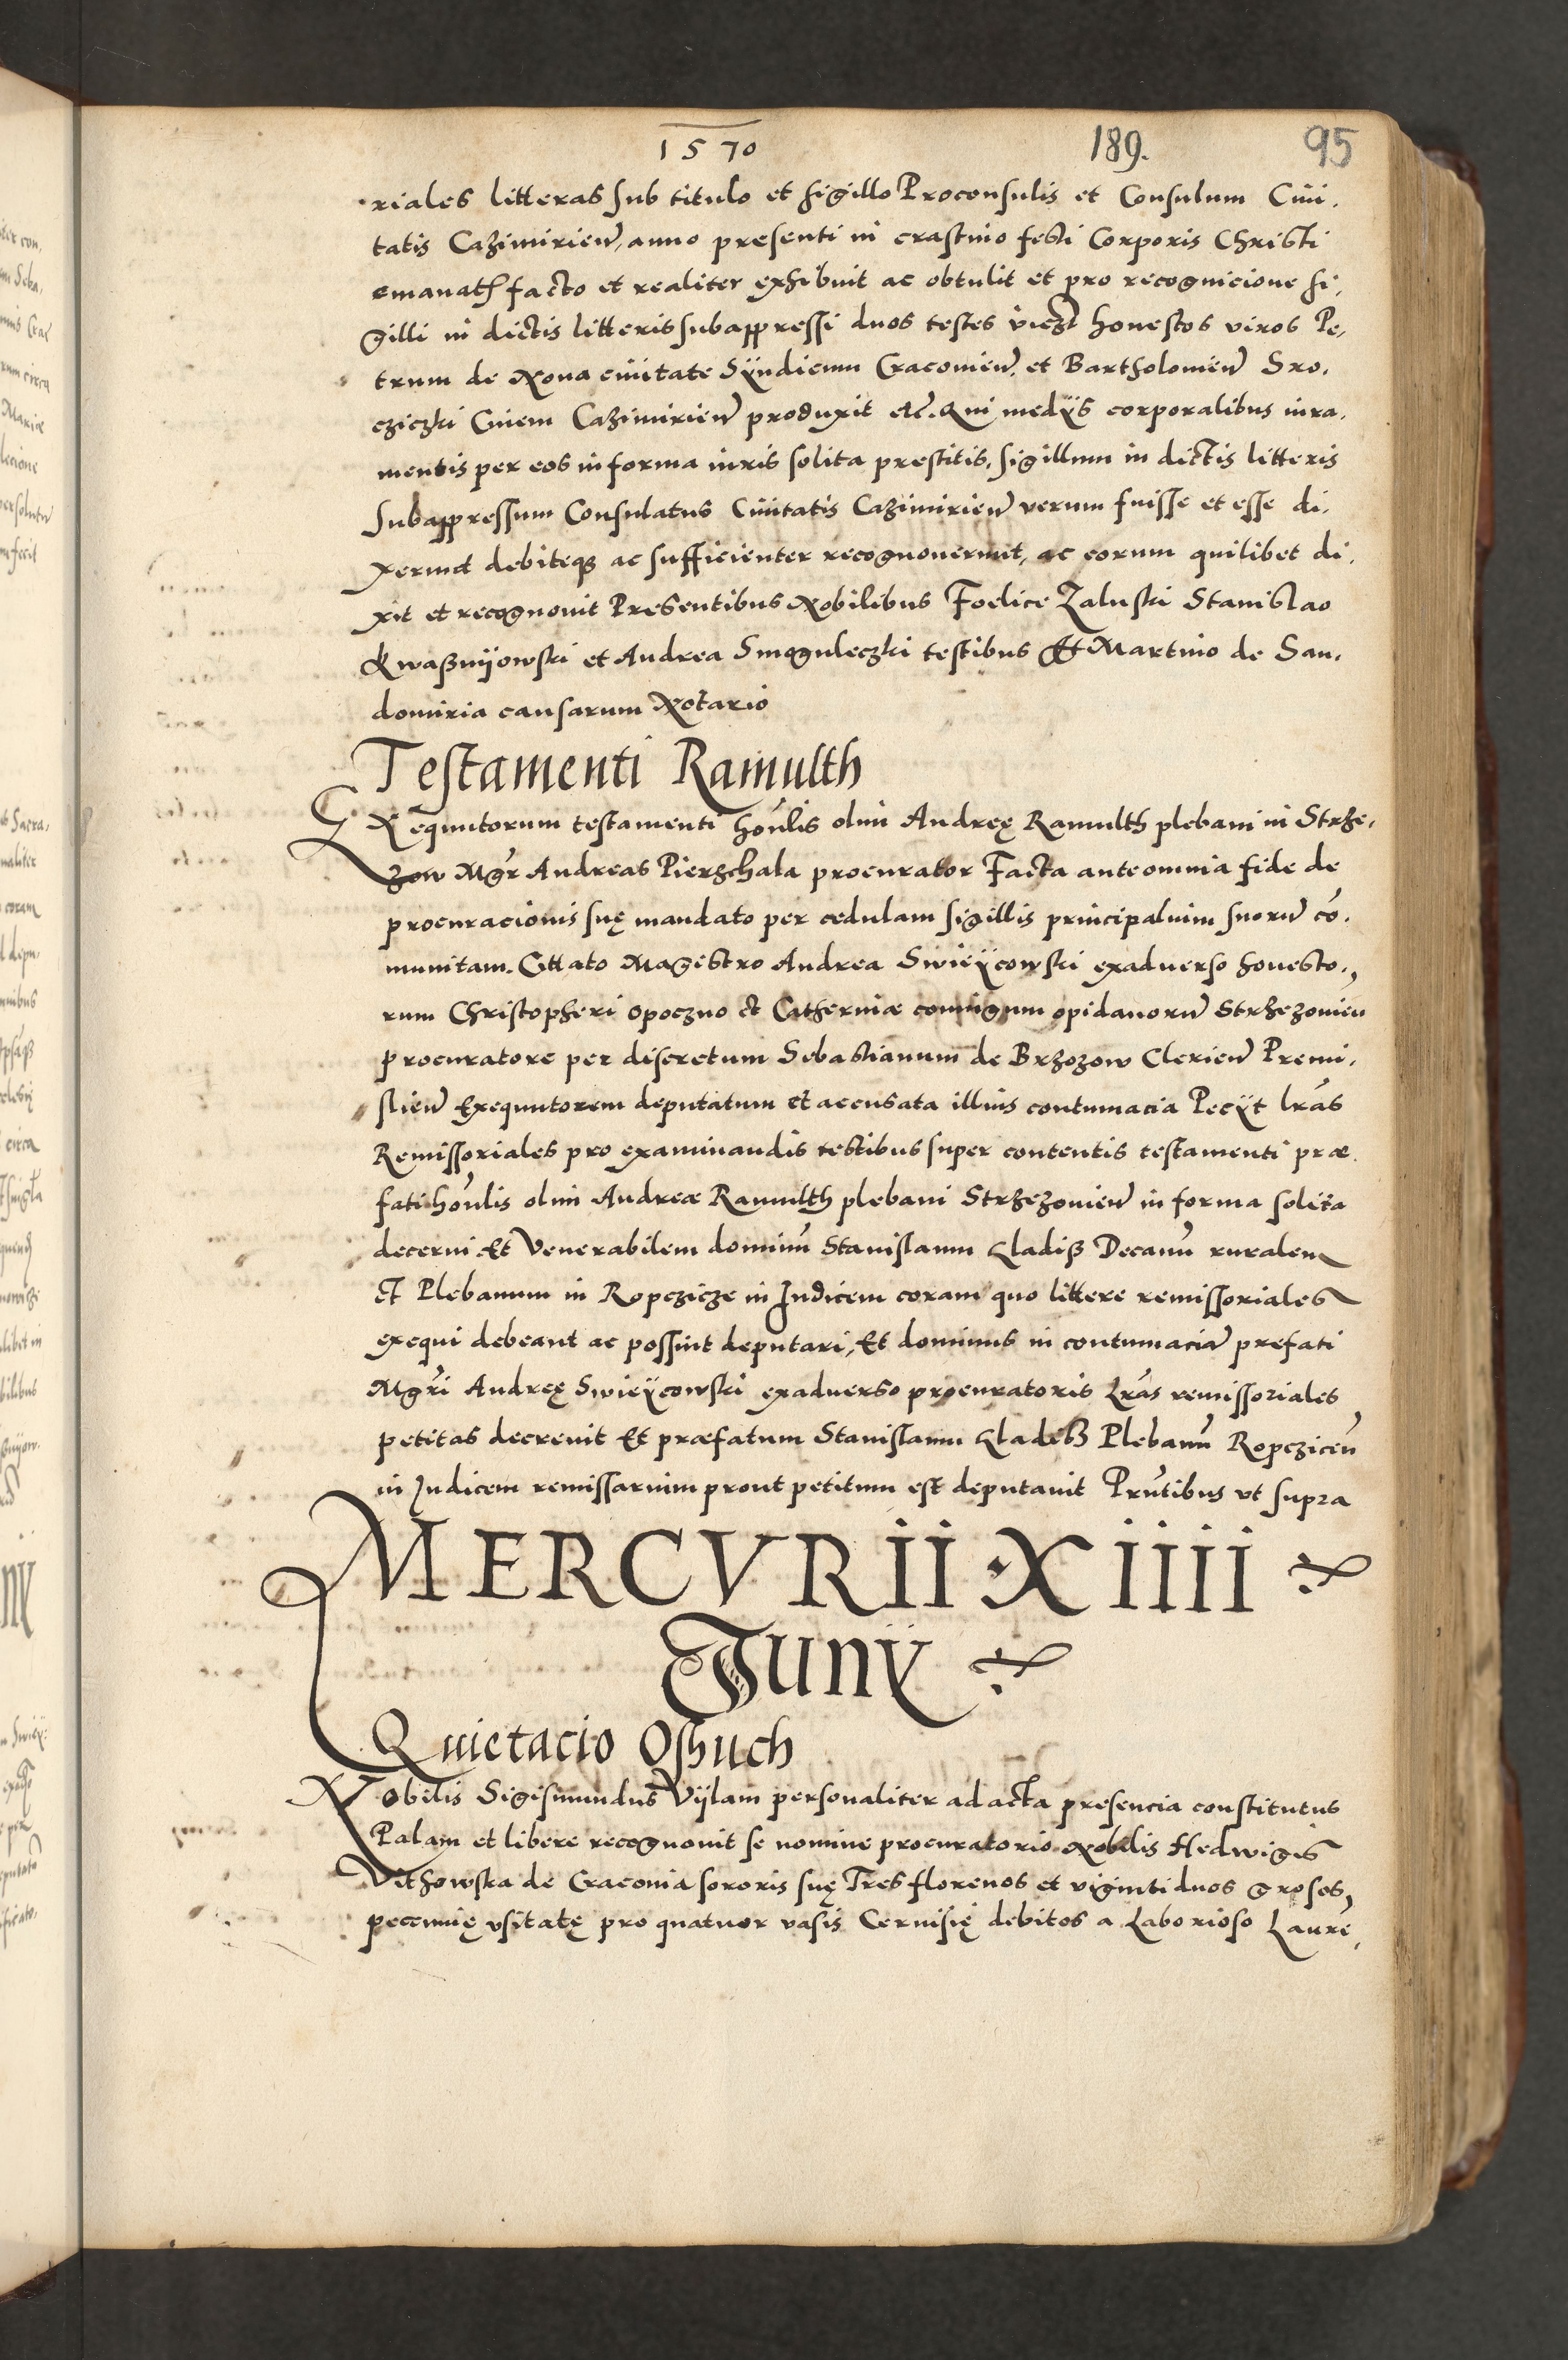 1570 189. 95
riales litteras sub titulo et sigillo Proconsulis et Consulum Ciui,
tatis Cazimirien̄, anno presenti in crastino festi Corporis Christi
emanat̄ facto et realiter exhibuit ac obtulit et pro recognicione si,
gilli in dictis litteris subappressi duos testes viczt honestos viros Pe,
trum de Noua ciuitate Sÿndicum Cracouien̄. et Bartholomeū Sro,
cziczki Ciuem Cazimirien̄ produxit etc̄. Qui medÿs corporalibus iura,
mentis per eos in forma iuris solita prestitis, sigillum in dictis litteris
subappressum Consulatus Ciuitatis Cazimirien̄ verum fuisse et esse di,
xerunt debiteq ac sufficienter recognouerunt, ac eorum quilibet di,
xit et recognouit Presentibus Nobilibus Foelice Zaluski Stanislao
Kwasznÿowski et Andrea Smoguleczki testibus Et Martino de San,
domiria causarum Notario
Testamenti Ramulth
Exequutorum testamenti hon̄lis olim Andreę Ramulth plebani in Strze,
zow Mgr̄ Andreas Pierzchala procurator Facta ante omnia fide de
procuracionis suę mandato per cedulam sigillis principaluim suorū cō,
munitam. Cittato Magistro Andrea Swieÿcowski exaduerso honesto,
rum Christopheri Opoczno et Catherinæ coniugum opidanorū Strzezouien̄
procuratore per discretum Sebastianum de Brzozow Clericū Premi,
slien̄ Exequutorem deputatum et accusata illius contumacia Pecÿt lrās
Remissoriales pro examinandis testibus super contentis testamenti præ
fati hon̄lis olim Andreæ Ramulth plebani Strzezouien̄ in forma solita
decerni Et Venerabilem dominū Stanislaum Gladisz Decanū ruralem
et Plebanum in Ropczicze in Iudicem coram quo littere remissoriales
exequi debeant ac possint deputari, Et dominus in contumaciā prefati
Mgr̄i Andreę Swieÿcowski exaduerso procuratoris Lrās remissoriales
petitas decreuit Et præfatum Stanislaum Gladisz Plebanū Ropczicen̄
in Iudicem remissarium prout petitum est deputauit Prn̄tibus vt supra
MERCVRII XIIII
Junÿ
Quietacio Ossuch
Nobilis Sigismundus Vÿlam personaliter ad acta presencia constitutus
Palam et libere recognouit se nomine procuratorio Nobilis Hedwigis
Vithowska de Cracouia sororis suę Tres florenos et viginti duos Grosos,
pecunię vsitatę pro quatuor vasis Ceruisię debitos a Laborioso Laurē,